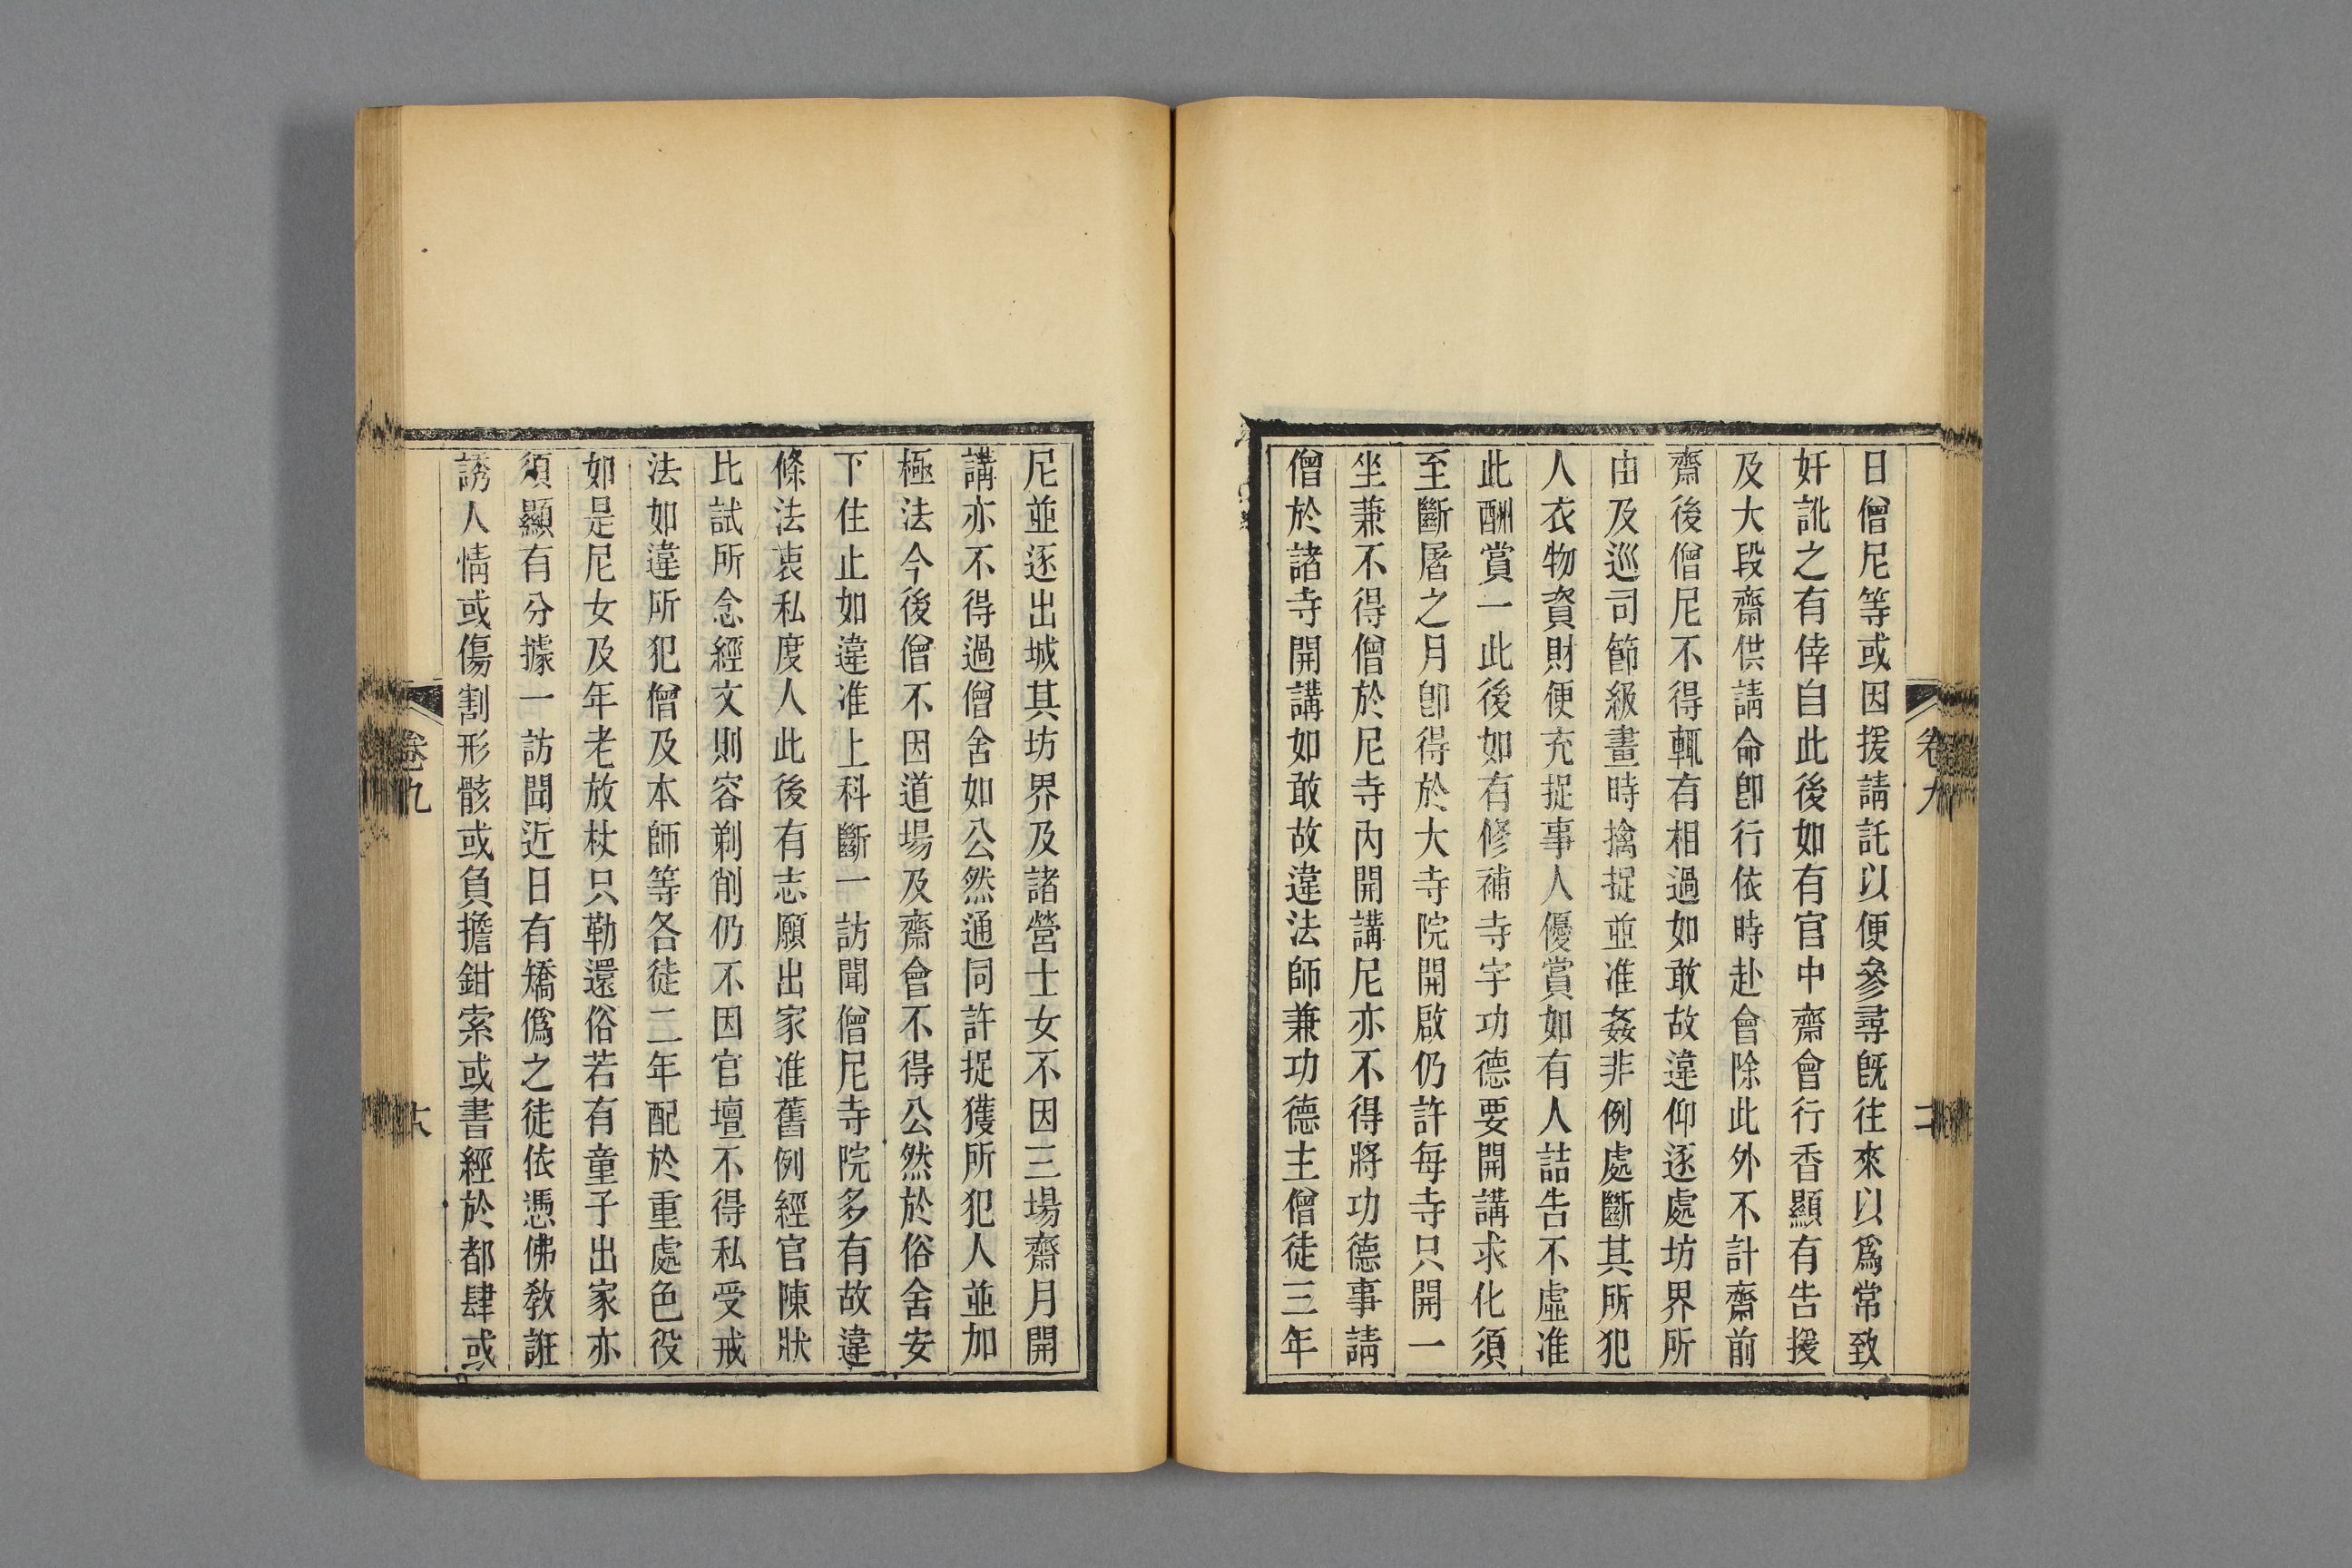 日僧尼等或因援請託以便參尋旣往來以爲常致
奸訛之有倖自此後如有官中齋會行香顯有告援
及大段齋供請命卽行依時赴會除此外不計齋前
齋後僧尼不得輒有相過如敢故違仰逐處坊界所
由及巡司節級畫時擒捉並准姦非例處斷其所犯
人衣物資財便充捉事人優賞如有人詰告不虛准
此酬賞一此後如有修補寺宇功德要開講求化須
至斷屠之月卽得於大寺院開啟仍許每寺只開一
坐兼不得僧於尼寺內開講尼亦不得將功德事請
僧於諸寺開講如敢故違法師兼功德主僧徒三年
尼並逐出城其坊界及諸營士女不因三場齋月開
講亦不得過僧舍如公然通同許捉獲所犯人並加
極法今後僧不因道場及齋會不得公然於俗舍安
下住止如違准上科斷一訪聞僧尼寺院多有故違
條法衷私度人此後有志願出家准舊例經官陳狀
比試所念經文則容剃削仍不因官壇不得私受戒
法如違所犯僧及本師等各徒二年配於重處色役
如是尼女及年老放杖只勒還俗若有童子出家亦
須顯有分據一訪聞近日有矯僞之徒依憑佛教誑
誘人情或傷割形骸或負擔鉗索或書經於都肆或
卷九